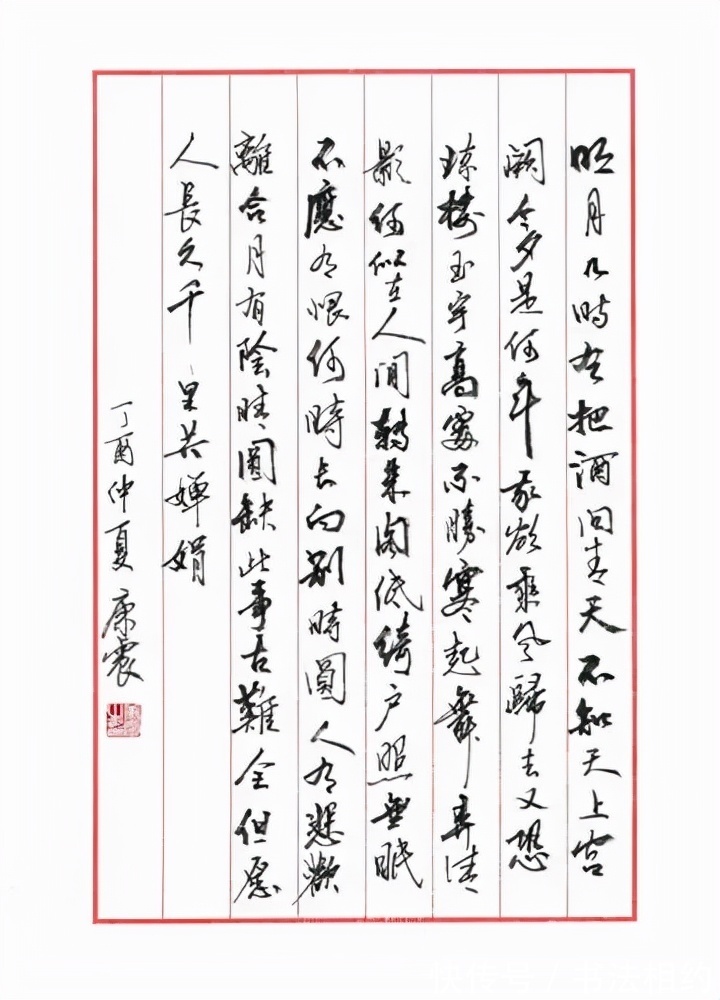 明月几時有把酒問青天不知天上宮
闕今夕是何年我欲乘風歸去又恐
琼樓玉宇高處不勝寒起舞弄清
影何似在人間轉朱閣低綺户照無眠
不應有恨何時長向别時圓人有悲歡
離合月有陰晴圓缺此事古難全但愿
人長久千里共嬋娟
丁酉仲夏康震